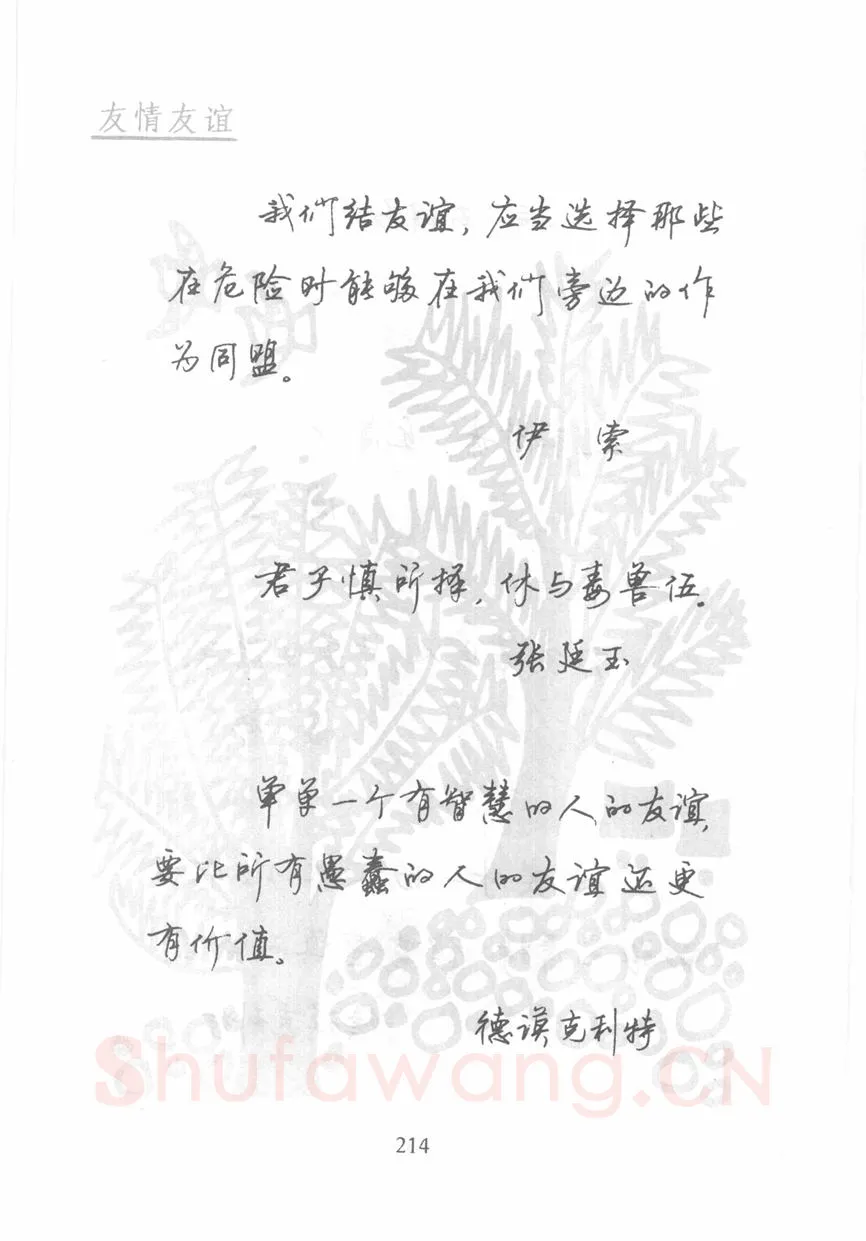 友情友谊
我们结友谊，应当选择那些
在危险时能够在我们旁边的作
为同盟。
伊 索
君子慎所择，休与毒兽伍。
张廷玉
单单一个有智慧的人的友谊，
要比所有愚蠢的人的友谊还更
有价值。
德谟克利特
Shufawang.CN
214